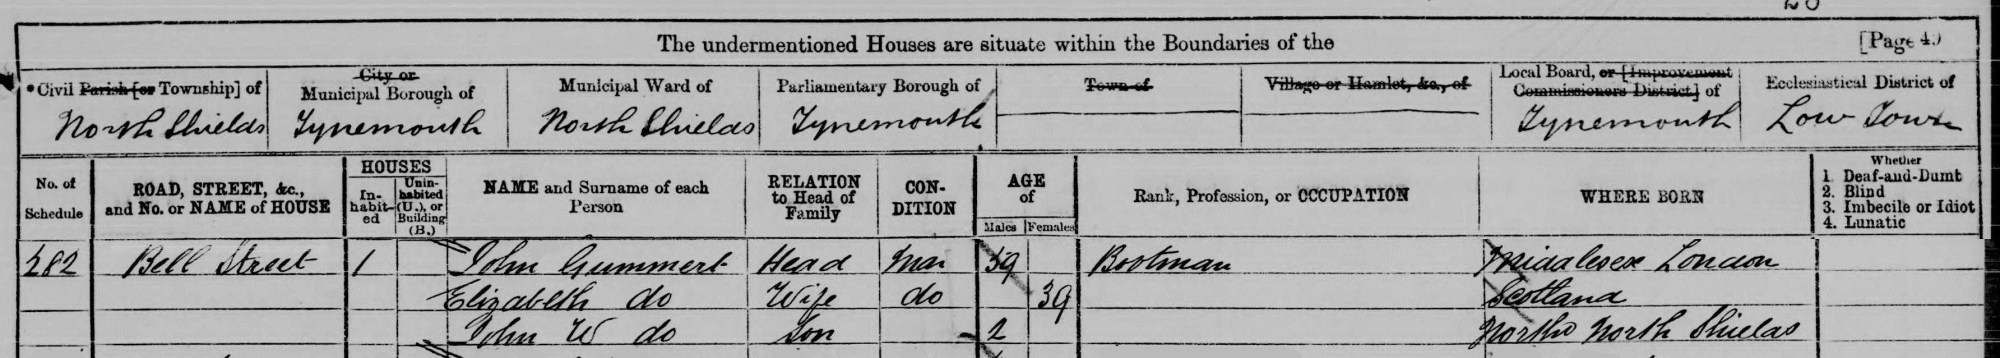 20
The undermentioned Houses are situate within the Boundaries of the [Page 4.)
*Civil Parish [or Township] of
City or Municipal Borough of
Municipal Ward of
Parliamentary Borough of
Town of
Village or Hamlet, &c., of
Local Board, or [Improvement Commissioners District] of
Ecclesiastical District of
North Shields Tynemouth North Shields Tynemouth Tynemouth Low Town
No. of Schedule
ROAD, STREET, &c., and No. or NAME of HOUSE
HOUSES
In-habit-ed
Unin-habited (U.), or Building (B.)
NAME and Surname of each Person
RELATION to Head of Family
CON-DITION
AGE of
Males Females
Rank, Profession, or OCCUPATION
WHERE BORN
Whether
1. Deaf-and-Dumb
2. Blind
3. Imbecile or Idiot
4. Lunatic
282 Bell Street 1 John Gummert Head Mar 39 Bootman Middlesex London
Elizabeth do Wife do 39 Scotland
John W do Son 2 North North Shields